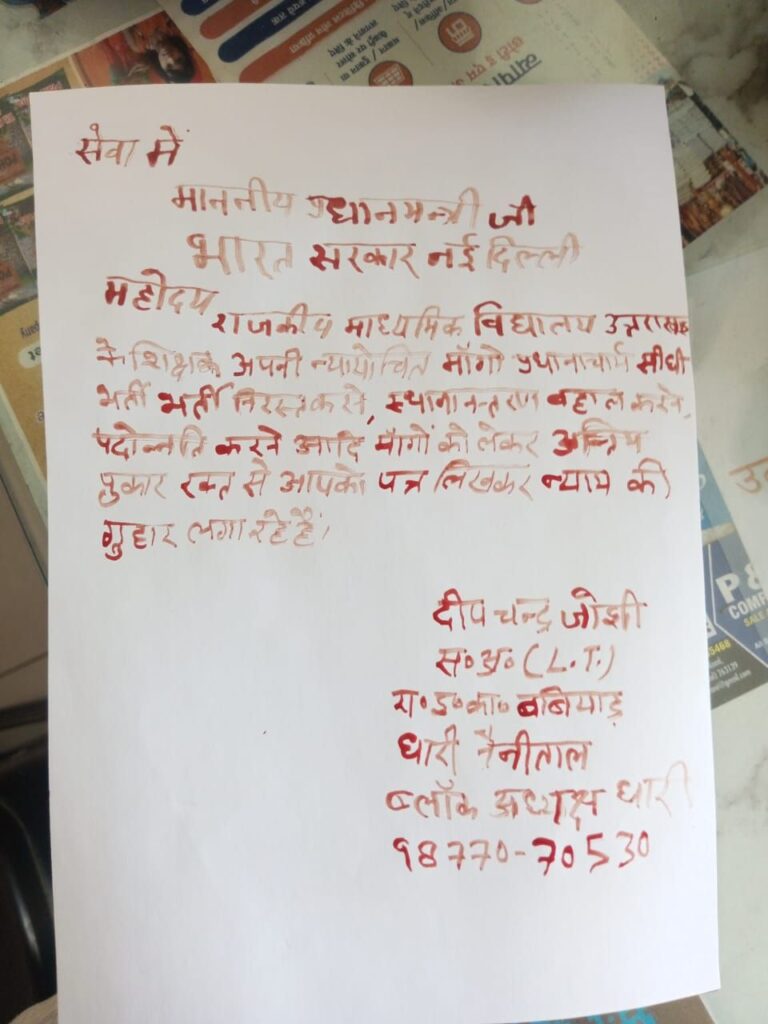 सेवा में
माननीय प्रधानमन्त्री जी
भारत सरकार नई दिल्ली
महोदय
राजकीय माध्यमिक विद्यालय उत्तराखण्ड
के शिक्षक अपनी न्यायोचित माँगो प्रधानाचार्य सीधी
भर्ती भर्ती निरस्त करने, स्थानान्तरण बहाल करने,
पदोन्नति करने आदि माँगों को लेकर अन्तिम
पुकार रक्त से आपको पत्र लिखकर न्याय की
गुहार लगा रहे हैं।
दीप चन्द्र जोशी
स॰ अ॰ (L.T.)
रा॰ इ॰ का॰ बबियाड़
धारी नैनीताल
ब्लॉक अध्यक्ष धारी
98770-70530
P&
COMP